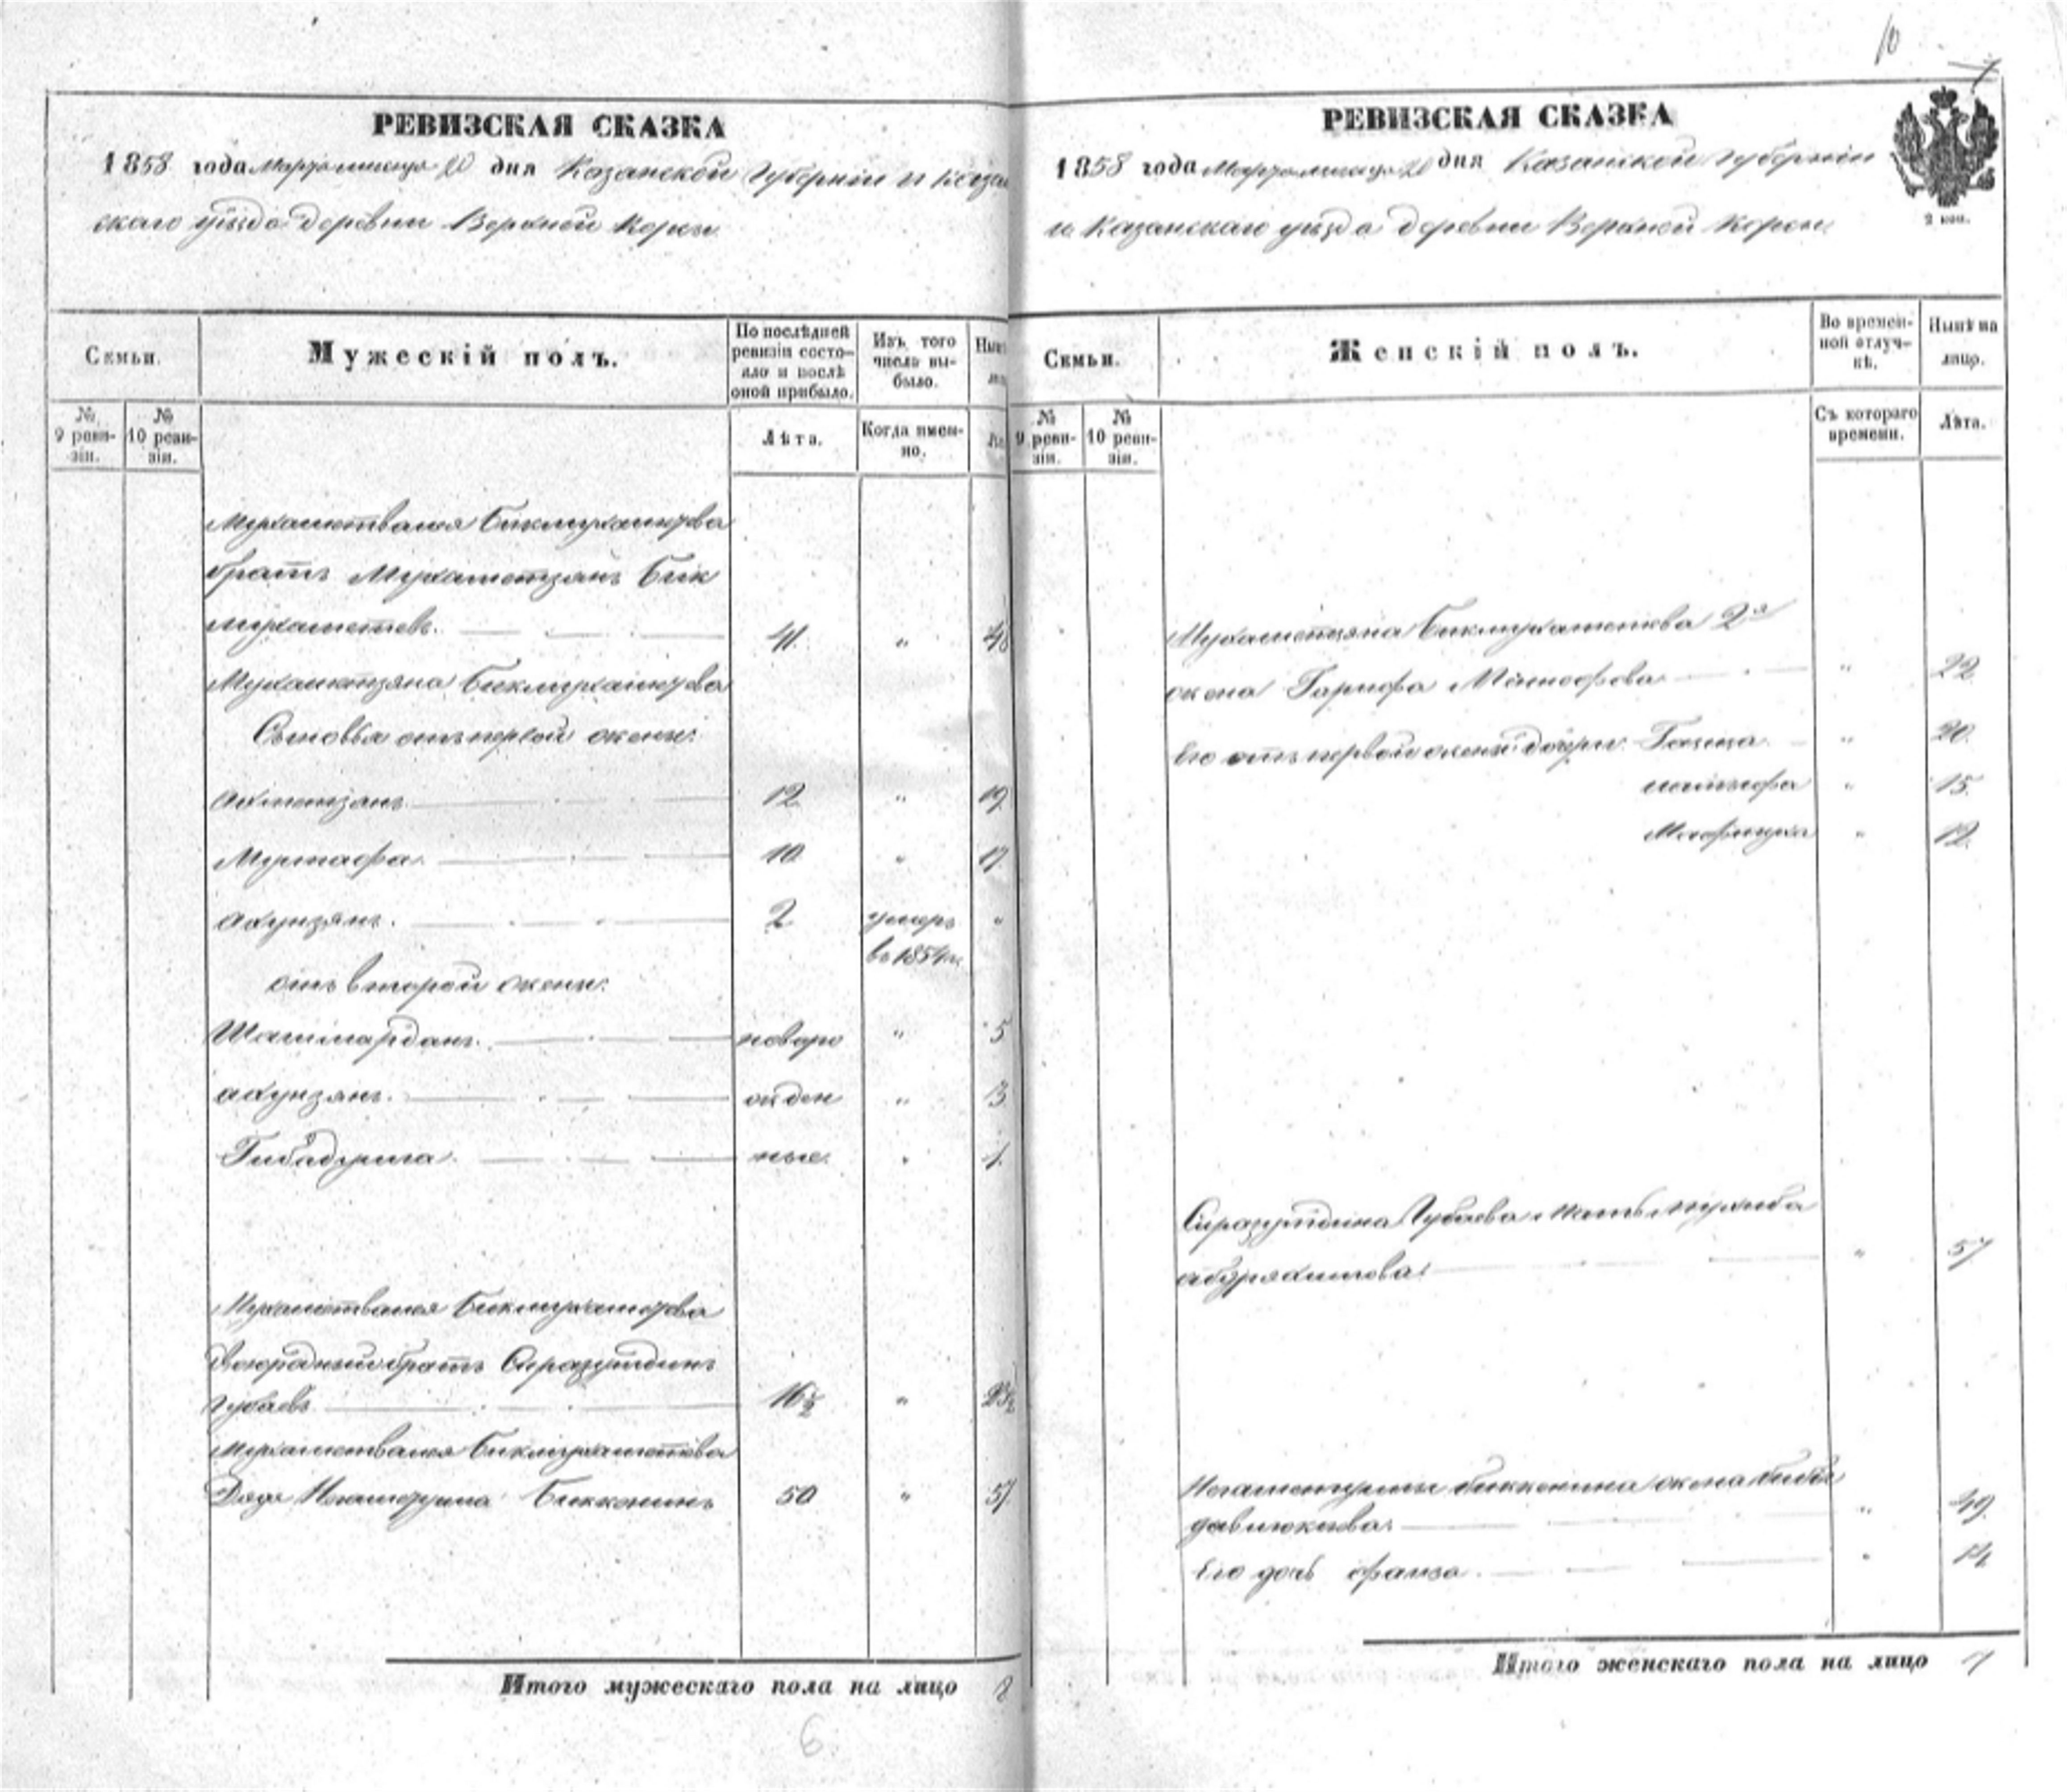 10
РЕВИЗСКАЯ СКАЗКА
1858 года Марта месяца 20 дня Казанской Губернiи и Казан
скаго уѣзда деревни Верхней Корсы
Семьи.
Мужескiй полъ.
По послѣдней ревизiи состо-
яло и послѣ
оной прибыло.
Изъ того
числа вы-
было.
Нынѣ
№
9 реви-
зiи.
№
10 реви-
зiи.
Лѣта.
Когда имен-
но.
Мухаметвалея Бикмухаметева
братъ Мухаметзянъ Бик
мухаметевъ. 41 " 48
Мухаметзяна Бикмухаметева
Сыновья отъ первой жены:
Ахметзянъ 12 " 19
Муртафа 10 " 17
Ахунзянъ. 2 умеръ "
въ 1854 г.
отъ второй жены:
Шагимарданъ. новоро " 5
Ахунзянъ. жден " 3
Гибадулла. ные. " 1
Мухаметвалея Бикмухаметева
Двоюродный братъ Сиразутдинъ
Губаевъ 16½ " 23½
Мухаметвалея Бикмухаметева
Дядя Негаметулла Биккенинъ 50 " 57
Итого мужескаго пола на лицо 8
6
РЕВИЗСКАЯ СКАЗКА
1858 года Марта месяца 20 дня Казанской Губернiи
и Казанскаго уѣзда деревни Верхней Корсы
2 коп.
Семьи.
Женскiй полъ.
Во времен-
ной отлуч-
кѣ.
Нынѣ на
лицо.
№
9 реви-
зiи.
№
10 реви-
зiи.
Съ котораго
времени.
Лѣта.
Мухаметзяна Бикмухаметева 2я
жена Гарифа " 22
Его отъ первой жены дочери: " 20
" 15
" 12
Сиразутдина Губаева мать
" 57
Негаметуллы Биккенина жена Биби
" 49
Его дочь Фаиза " 14
Итого женскаго пола на лицо 7